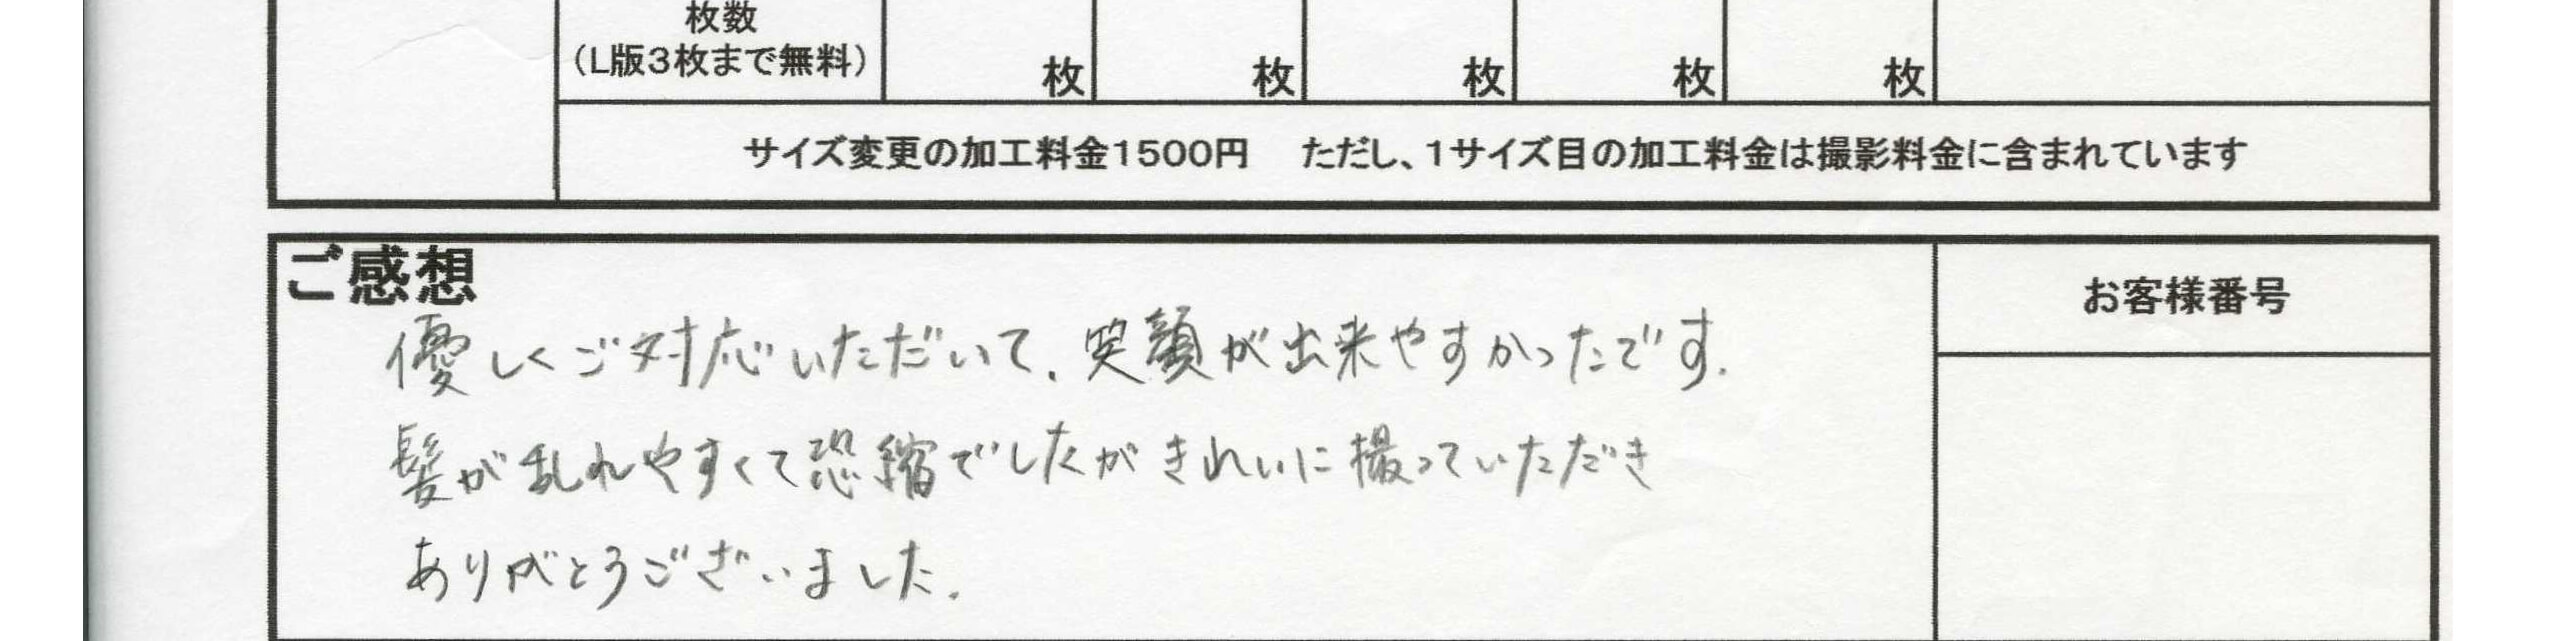 枚数
(L版3枚まで無料) 枚 枚 枚 枚 枚
サイズ変更の加工料金1500円 ただし、1サイズ目の加工料金は撮影料金に含まれています
ご感想
お客様番号
優しくご対応いただいて、笑顔が出来やすかったです。
髪が乱れやすくて恐縮でしたがきれいに撮っていただき
ありがとうございました。